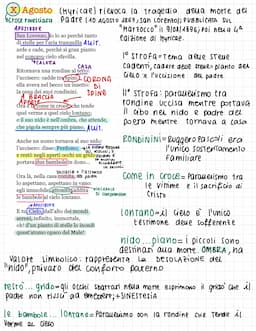 X Agosto
(Myricae) rievoca la tragedia della morte del
Padre (10 agosto 1867, San Lorenzo); pubblicata sul
"Marzocco" il 9/08/1896, poi nella 4ª
edizione di Myricae.
1ª strofa = tema delle stelle
cadenti, cadere delle stelle: pianto del
cielo e l'uccisione del padre
IIª strofa: parallelismo tra
rondine uccisa mentre portava
il cibo nel nido e padre del
poeta mentre tornava a casa
RONDININI = Ruggero Pascoli era
l'unico sostentamento
familiare
Come in croce = Parallelismo tra
le vittime e il sacrificio di
Cristo
lontano = il cielo è l'unico
testimone delle sofferenze
nido...piano = i piccoli sono
destinati alla morte. OMBRA, ha
valore simbolico: rappresenta la desolazione del
"nido", privato del conforto paterno
restò... grido = gli occhi sbarrati nella morte esprimono il grido che il
padre non riuscì ad emettere; + SINESTESIA
le bambole... lontano = Parallelismo con la rondine che tende il
verme al cielo
San Lorenzo, io lo so perché tanto
di stelle per l'aria tranquilla
arde e cade, perché sì gran pianto
nel concavo cielo sfavilla.
Ritornava una rondine al tetto:
l'uccisero: cadde tra spini:
ella aveva nel becco un insetto:
la cena de' suoi rondinini.
CORONA
DI
SPINE
A BRACCIA
APERTE
Ora è là, come in croce, che tende
quel verme a quel cielo lontano;
e il suo nido è nell'ombra, che attende,
che pigola sempre più piano.
Anche un uomo tornava al suo nido:
l'uccisero: disse: Perdono;
e restò negli aperti occhi un grido:
portava due bambole in dono...
Ora là, nella casa romita,
lo aspettano, aspettano in vano:
egli immobile, attonito, addita
le bambole al cielo lontano.
E tu, Cielo, dall'alto dei mondi
sereni, infinito, immortale,
oh! d'un pianto di stelle lo inondi
quest'atomo opaco del Male!